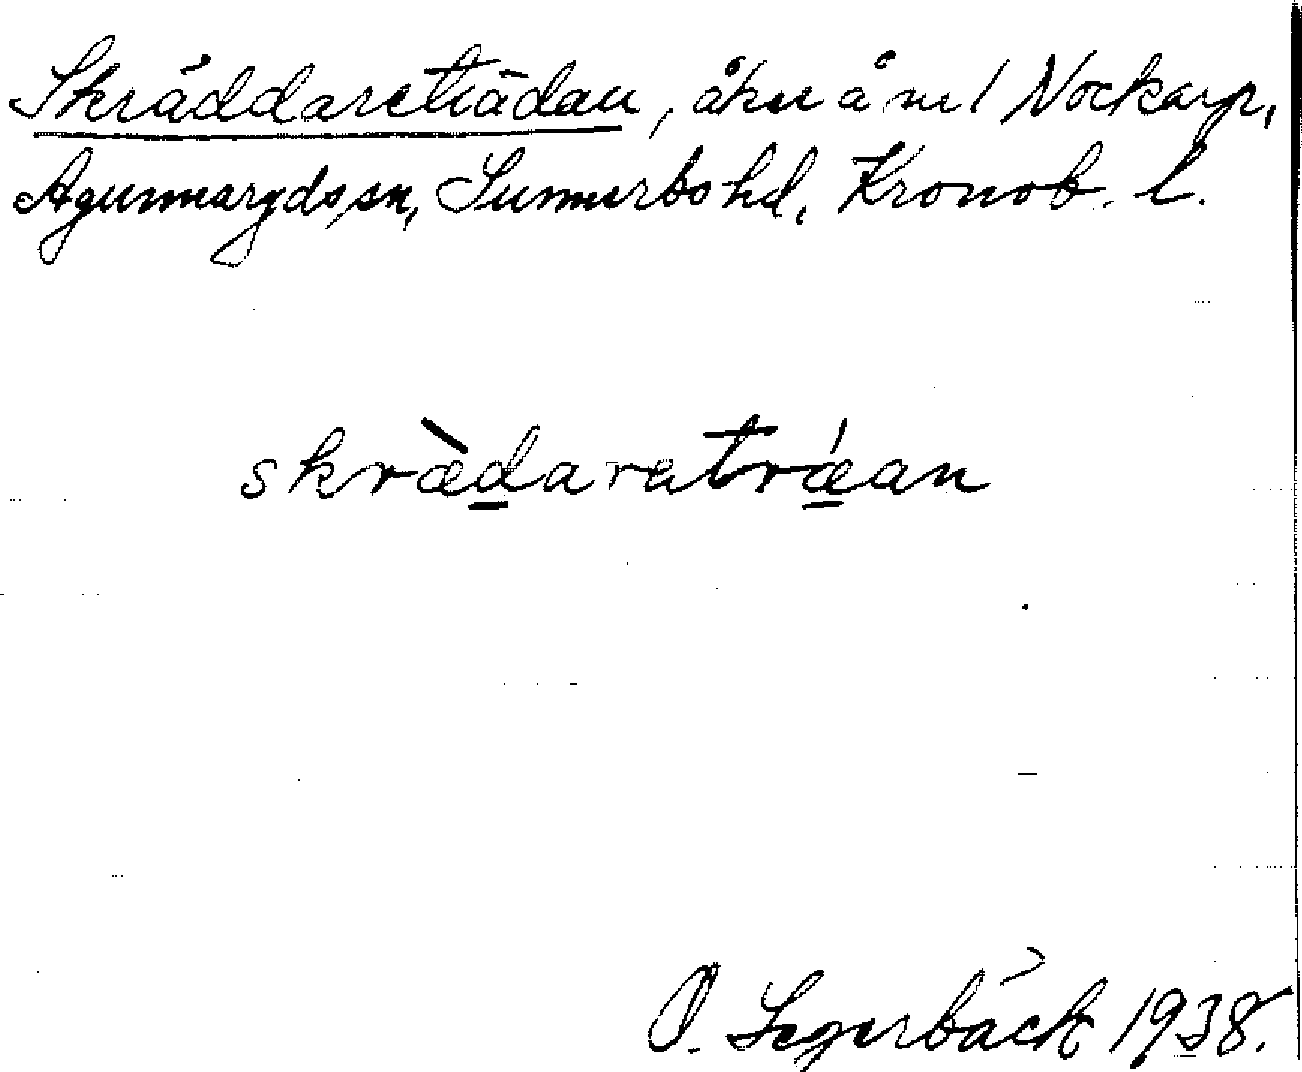 Skräddareträdan, åker å nr 1 Nockarp,
Agunnaryds sn, Sunnerbo hd, Kronob. l.
skræ̀daratrǽan
O. Segerbäck 1938.